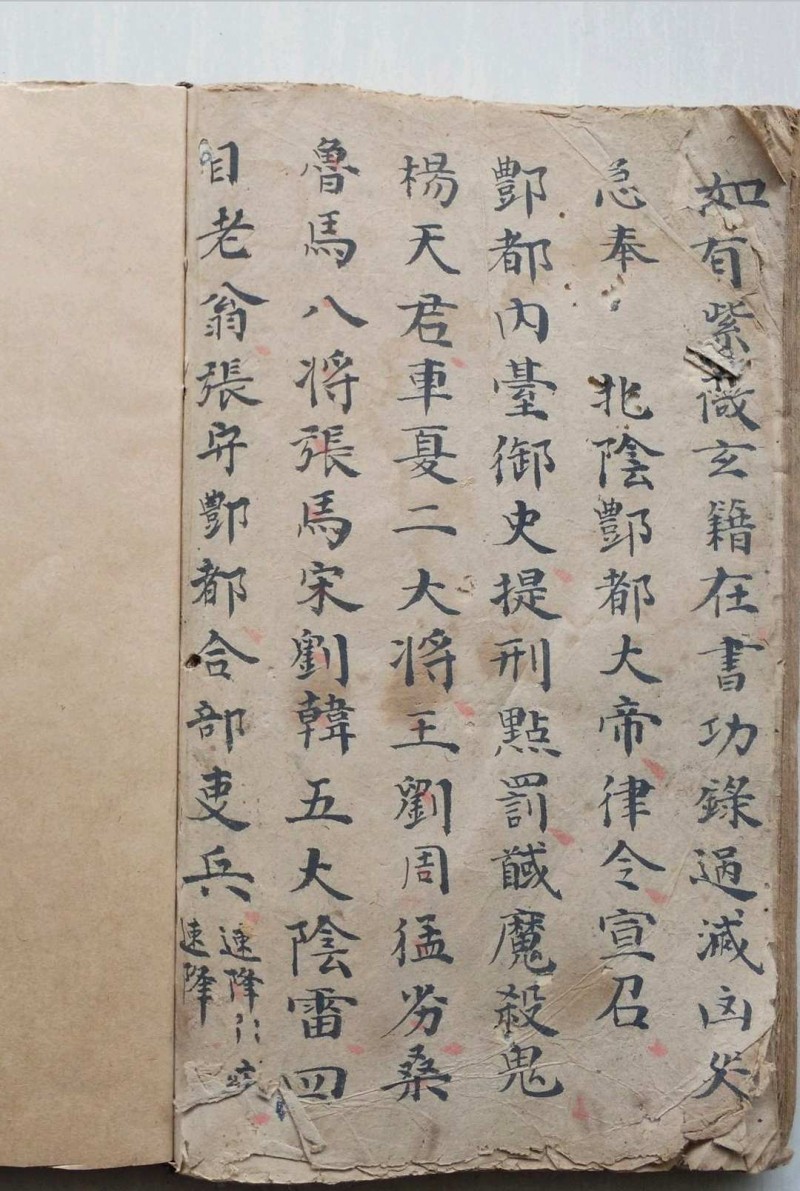 如有紫微玄籍在書功錄過滅凶災
急奉 北陰酆都大帝律令宣召
酆都內臺御史提刑點罰馘魔殺鬼
楊天君車夏二大將王劉周孟労桑
魯馬八將張馬宋劉韓五大陰雷四
目老翁張守酆都合部吏兵
速降
速降